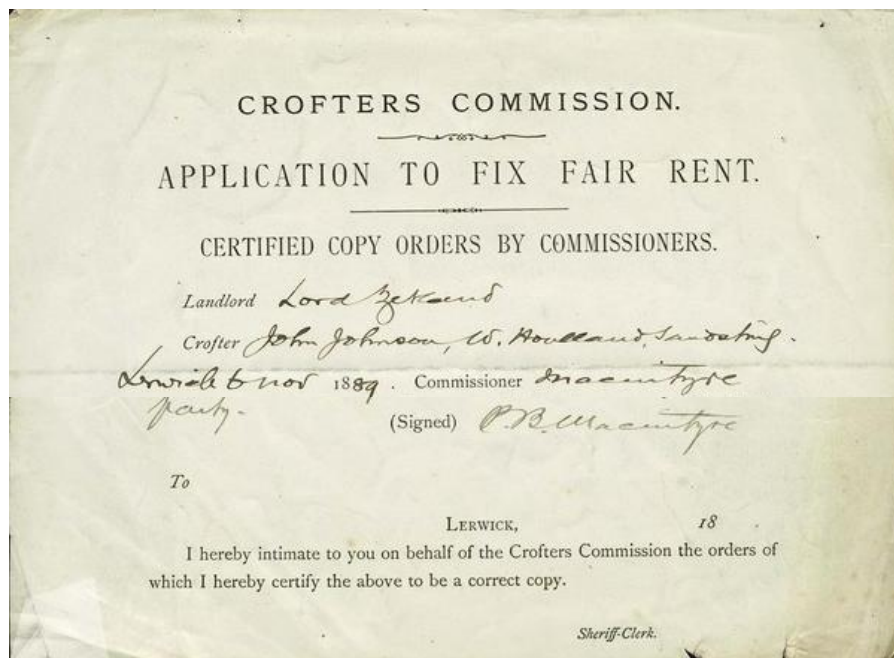 CROFTERS COMMISSION.
APPLICATION TO FIX FAIR RENT.
CERTIFIED COPY ORDERS BY COMMISSIONERS.
Landlord Lord Zetland
Crofter John Johnson, W. Houlland, Sandsting.
Lerwick 6 Nov 1889. Commissioner Macintyre
party.
(Signed) P.B. Macintyre
To
LERWICK, 18 .
I hereby intimate to you on behalf of the Crofters Commission the orders of
which I hereby certify the above to be a correct copy.
Sheriff-Clerk.